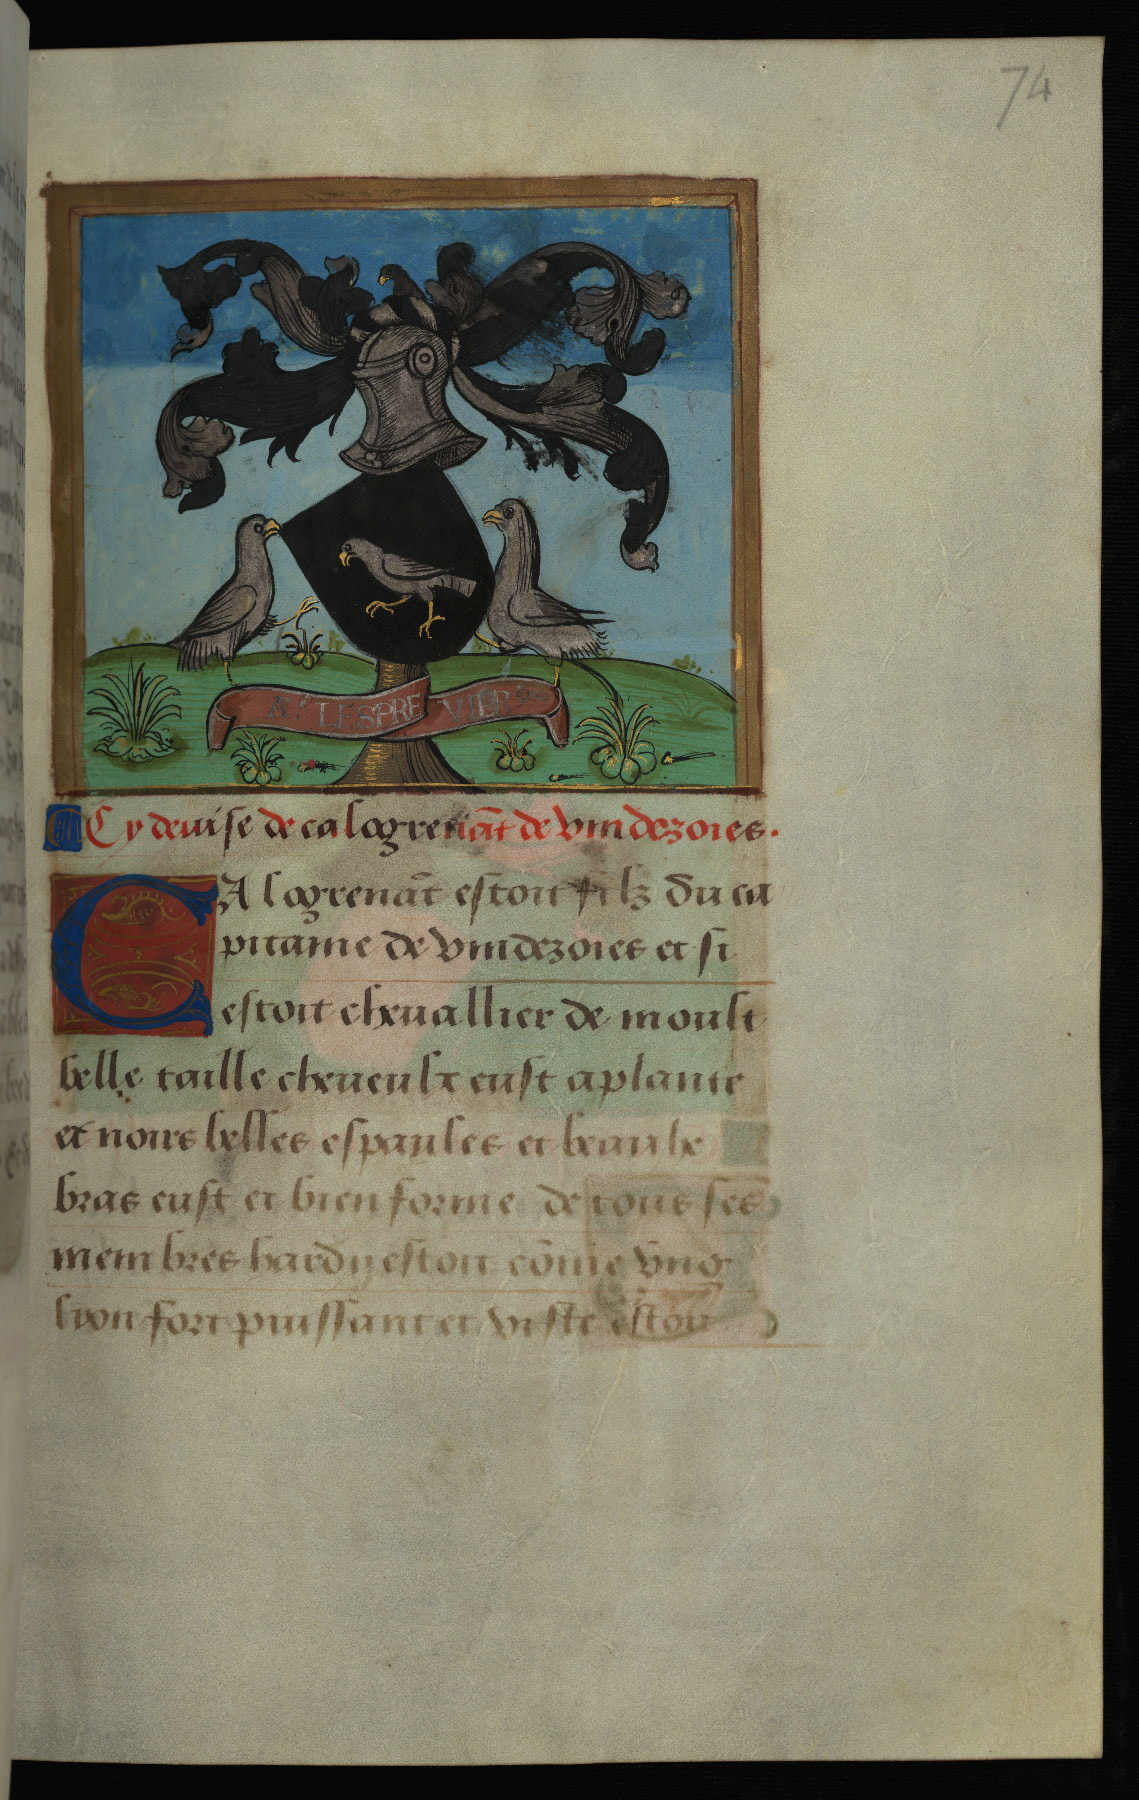 74
A LESPREVIER
Cy deuise de calogrenãt de vindezoies.
CAlogrenãt estoit filz du ca
pitaine de vindezoies et si
estoit cheuallier de moult
belle taille cheueulx eust a plante
et noirs belles espaules et beaulx
bras eust et bien forme de tous ses
membres hardy estoit cõme vng
lyon fort puissant et viste estoit